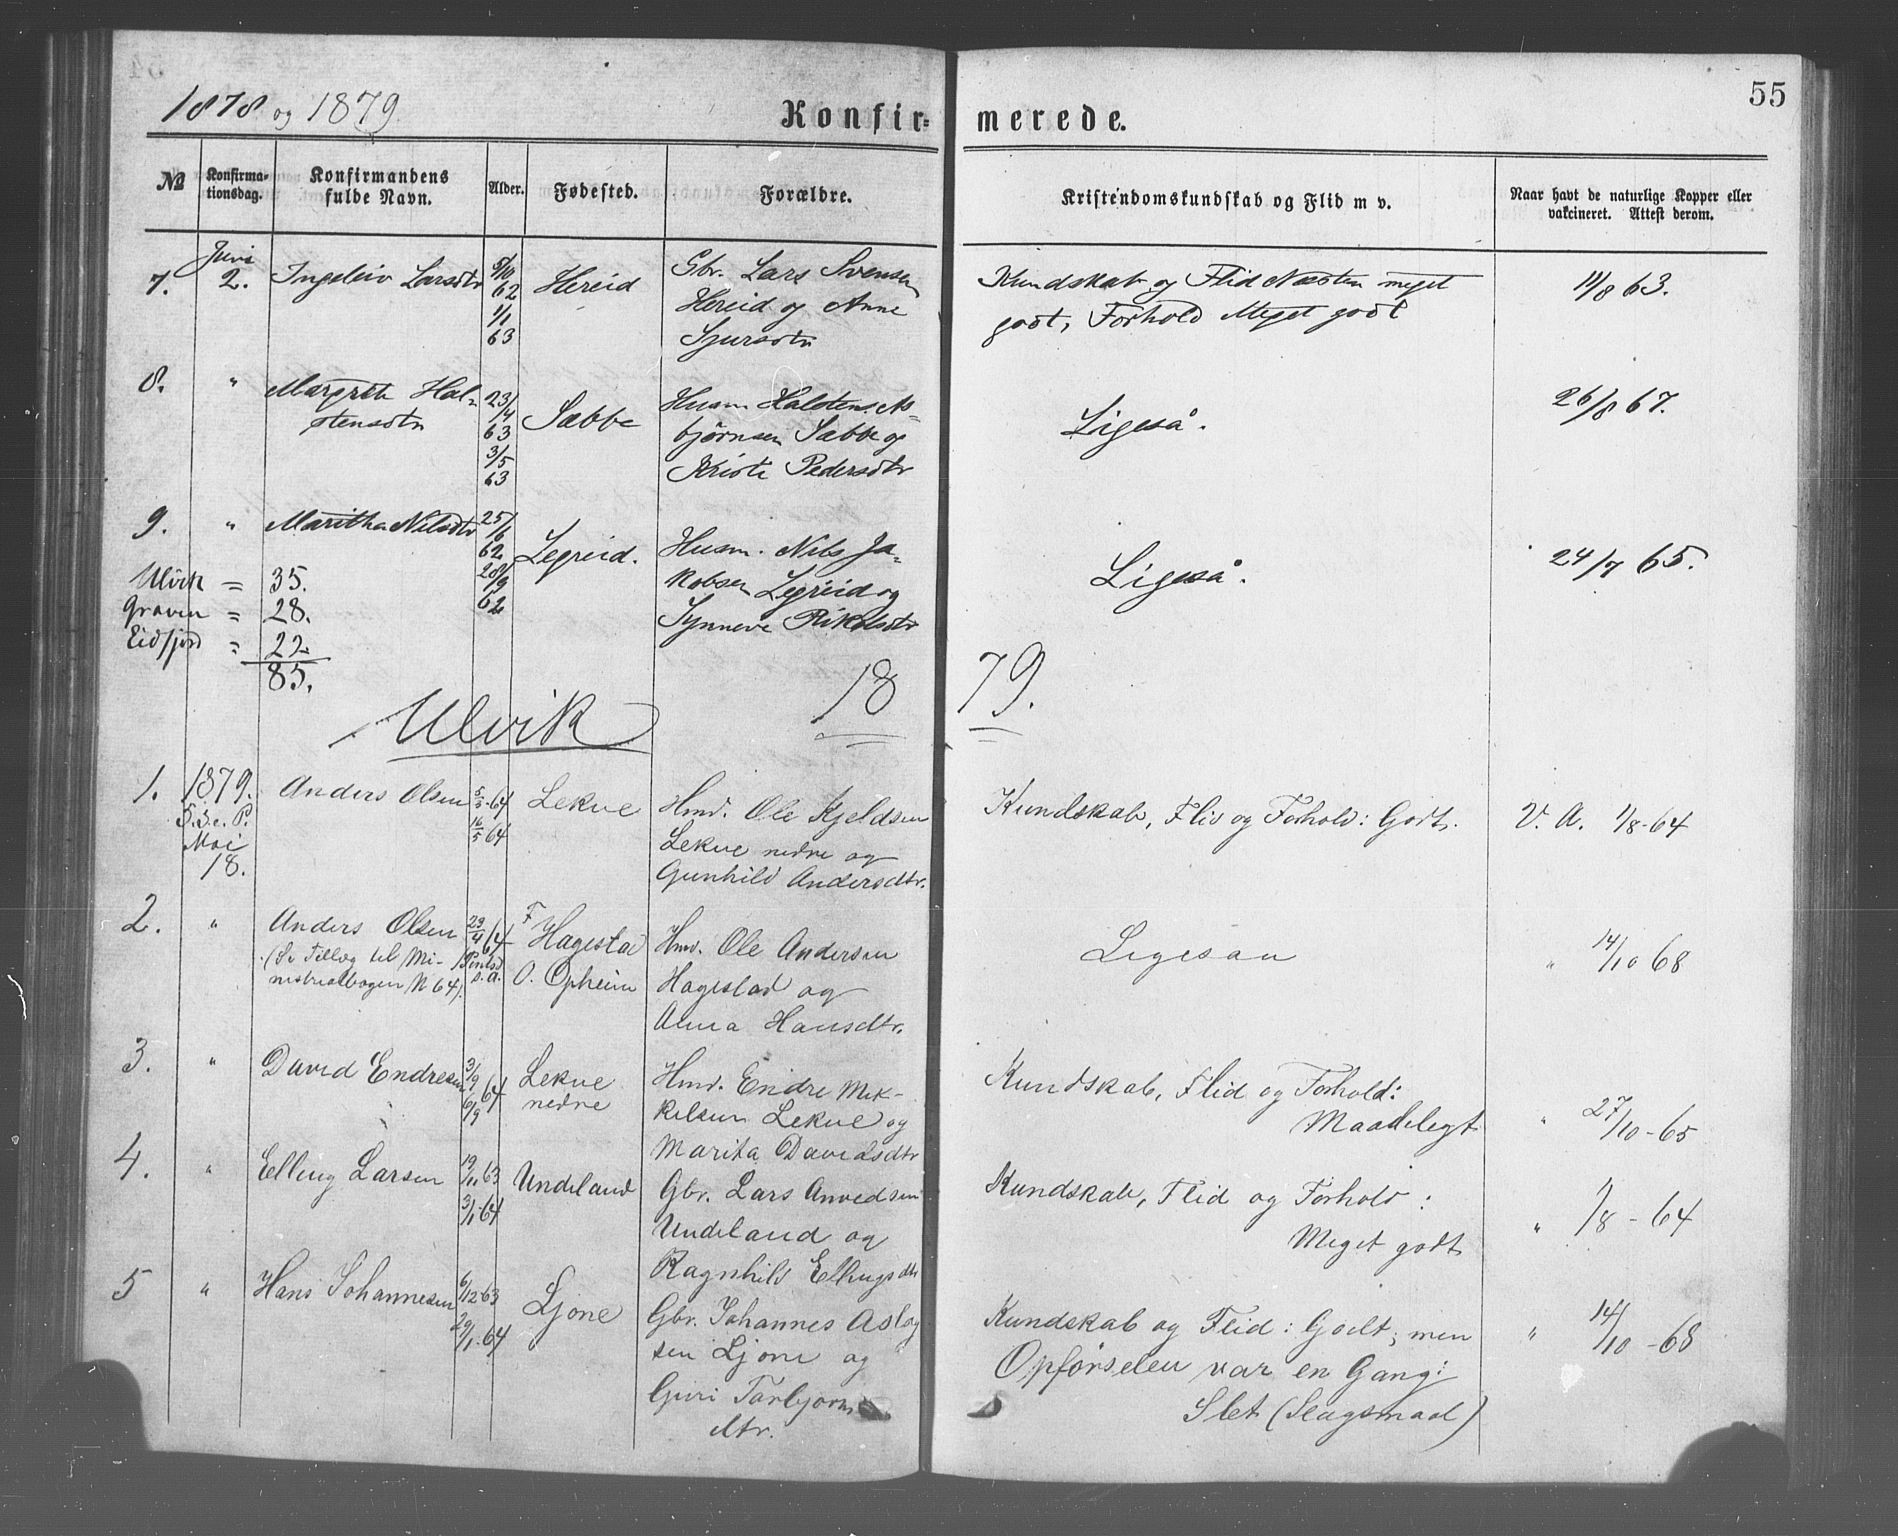 55
1878 og 1879.
Konfir= merede.
№ Konfirma-tionsdag. Konfirmandens fulde Navn. Alder. Fødested. Forældre. Kristendomskundskab og Flid m v. Naar havt de naturlige Kopper eller vakcineret. Attest derom.
Juni
7. 2. Ingeleiv Larsdtr 5/10 62 1/1 63 Hereid Gbr. Lars Svensen
Hereid og Anne
Sjursdtr
Kundskab og Flid Næsten meget
godt, Forhold Meget godt
11/8 63.
8. " Margrete Hal-
stensdtr
23/4 63 3/5 63 Sæbbe Husm Halsten As-
bjørnsen Sæbbe og
Kristi Pedersdtr
Ligeså. 26/8 67.
9. " Maritha Nilsdtr 25/6 62 28/9 62 Legreid. Husm. Nils Ja-
kobsen Legreid og
Synneve Rikolsdtr
Ligeså. 24/7 65.
Ulvik = 35.
Graven = 28.
Eidfjord = 22.
85.
1879.
Ulvik
1. 1879. Anders Olsen 5/5-64 16/5 64 Lekve Hmd. Ole Kjeldsen
S. S. e. P.
Mai
18.
Lekve nedre og
Gunhild Andersdtr.
Kundskab, Flid og Forhold: Godt. V. A. 1/8-64
2. " Anders Olsen 23/4 64 F Hagestad Hmd. Ole Andersen
(Se Tillæg til Mi-
nistrialbogen N 64).
O. Opheim Hagestad og
Anna Hansdtr.
Ligesaa " 14/10 68
3. " David Endresen 3/9 6/9 64 Lekve
nedre
Hmd. Endre Mik-
kelsen Lekve og
Marita Davidsdtr
Kundskab, Flid og Forhold:
Maadelegt " 27/10-65
4. " Elling Larsen 19/11 63 3/1-64 Undeland Gbr. Lars Anvedsen
Undeland og
Ragnhild Ellingsdtr
Kundskab, Flid og Forhold:
Meget godt " 1/8-64
5 " Hans Johannesen 6/12-63 29/1-64 Ljone Gbr. Johannes Aslag
sen Ljone og
Guri Torbjørns
dtr.
Kundskab og Flid: Godt; men
Opførselen var en Gang:
Slet (Slagsmaal)
" 14/10-68